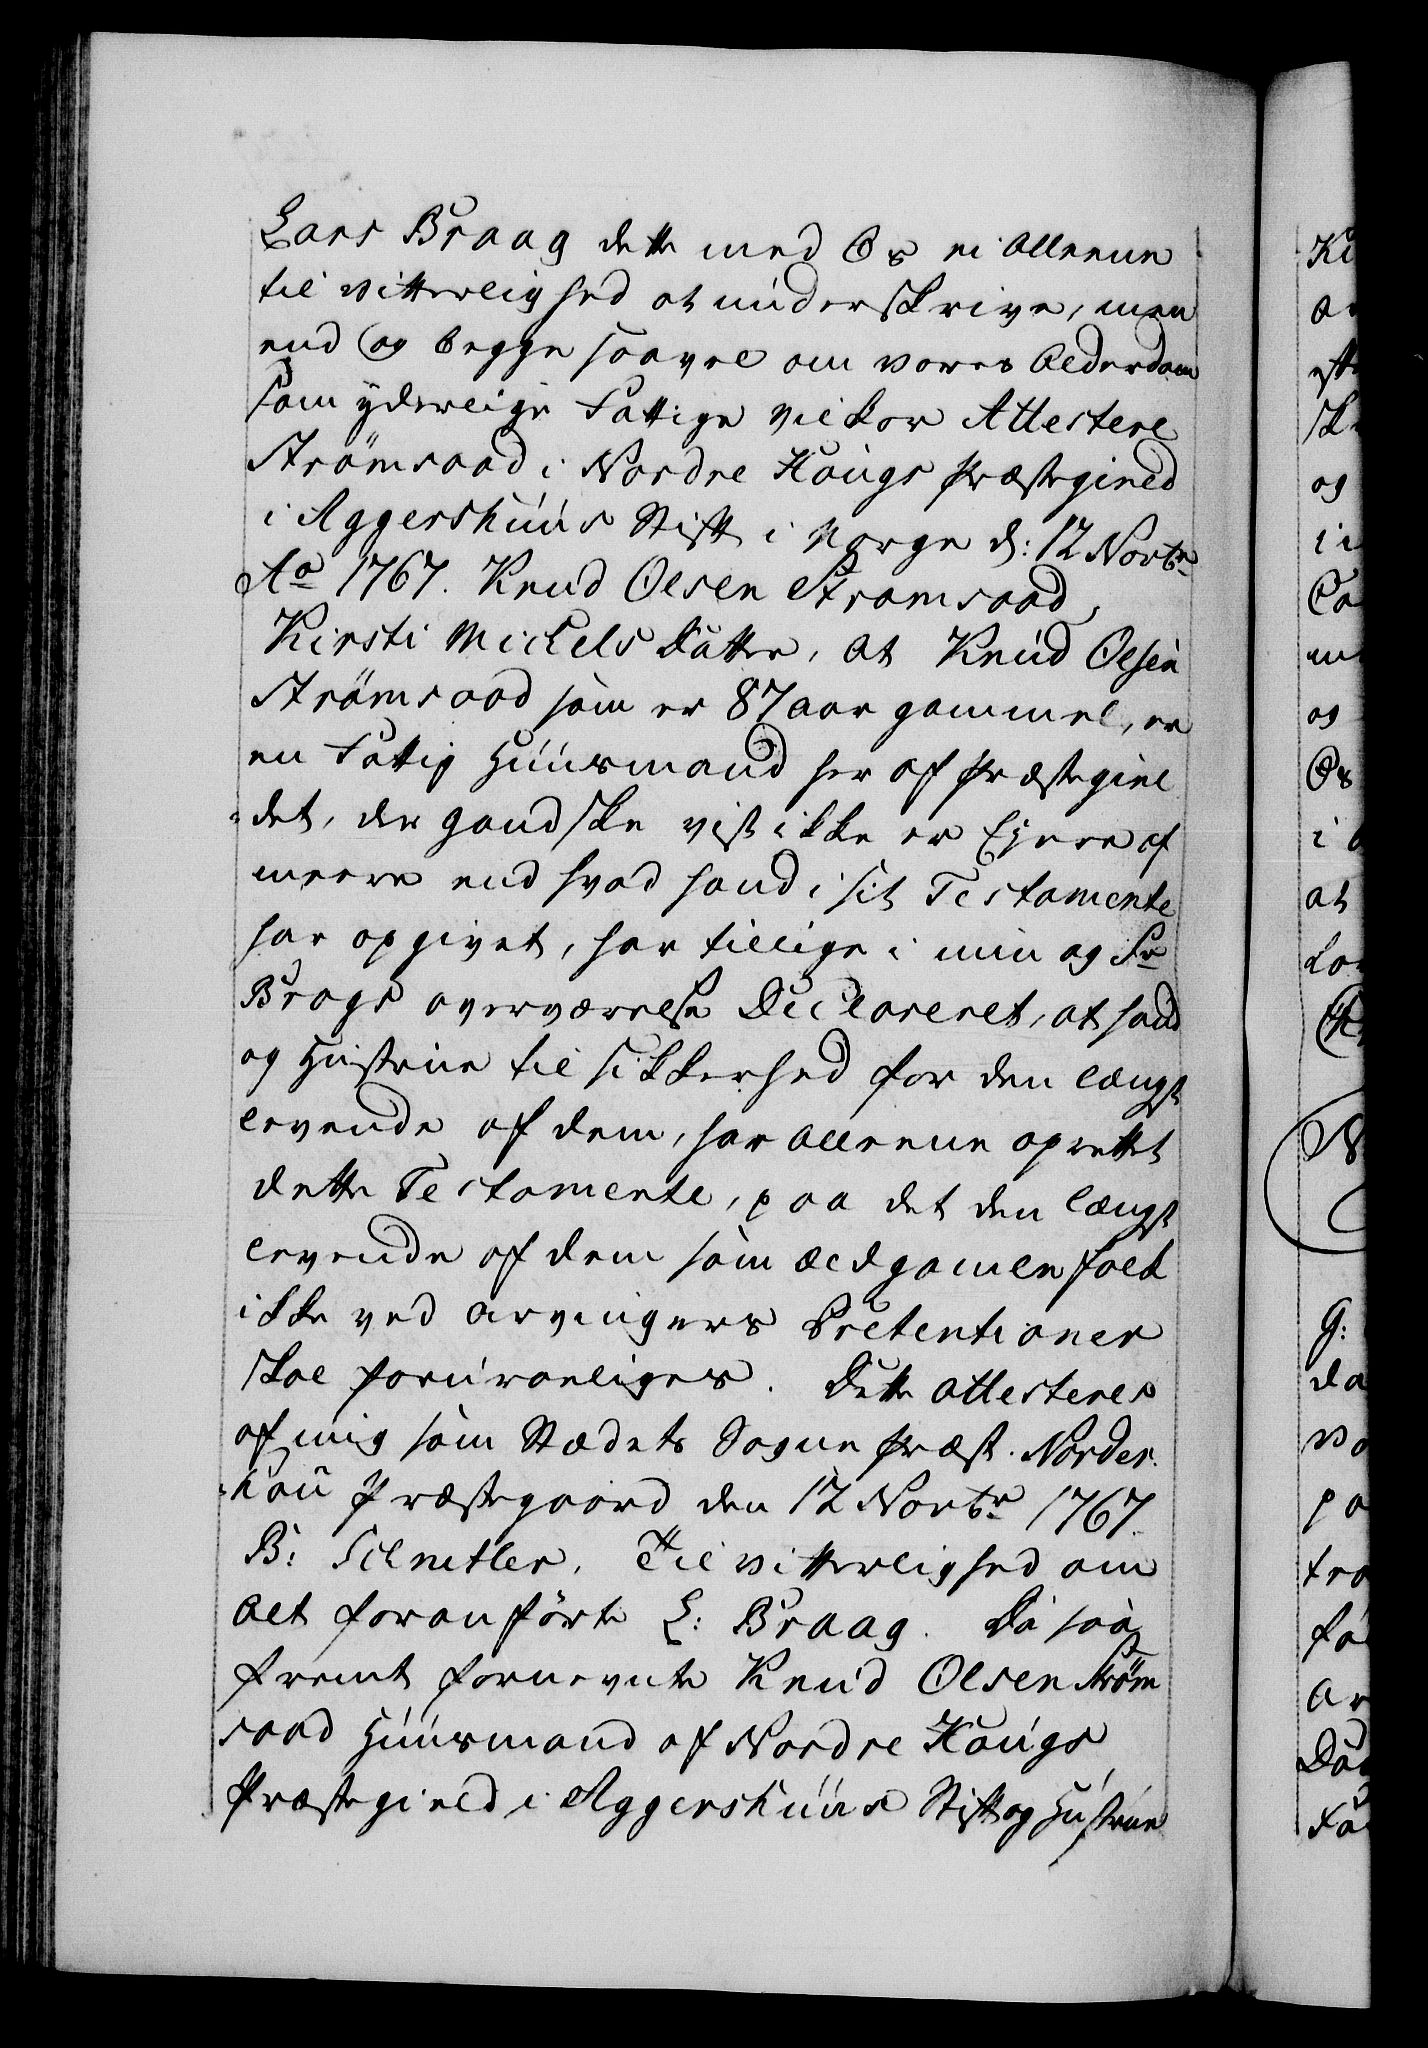 Lars Braag dette med Os ei alleene
til vitterlighed at underskrive, men
end og begge saavel om vores Alderdom
som yderlige Fattige Vilkor Attestere
Strømsaad i Nordre Hougs Præstegield
i Aggershuus Stift i Norge d: 12 Novbr
Ao 1767. Knud Olsen Stromsaad,
Kirsti Michels Datter, at Knud Olsen
Strømsaad som er 87 aar gammel, er
en Fattig Huusmand her af Præstegiel
det, der gandske vist ikke er Ejere af
meere end hvad hand i sit Testamente
har opgivet, har tillige i min og Sr
Brags overværelse Declareret, at hand
og Hustrue til sikkerhed for den længst
levende af dem, har alleene oprettet
dette Testamente, paa det den længst
levende af dem som ældgamle folk
ikke ved arvingers Prætentioner
skal foruroeliges. Dette attesteres
af mig som Stædets Sogne Præst. Norder
hou Præstegaard den 12 Novbr 1767
B: Schnitler. Til vitterlighed om
alt foranførte L: Braag. Da saa
fremt fornevnte Knud Olsen Strøm
saad Huusmand af Nordre Hougs
Præstegield i Aggershuus Stift og Hustrue